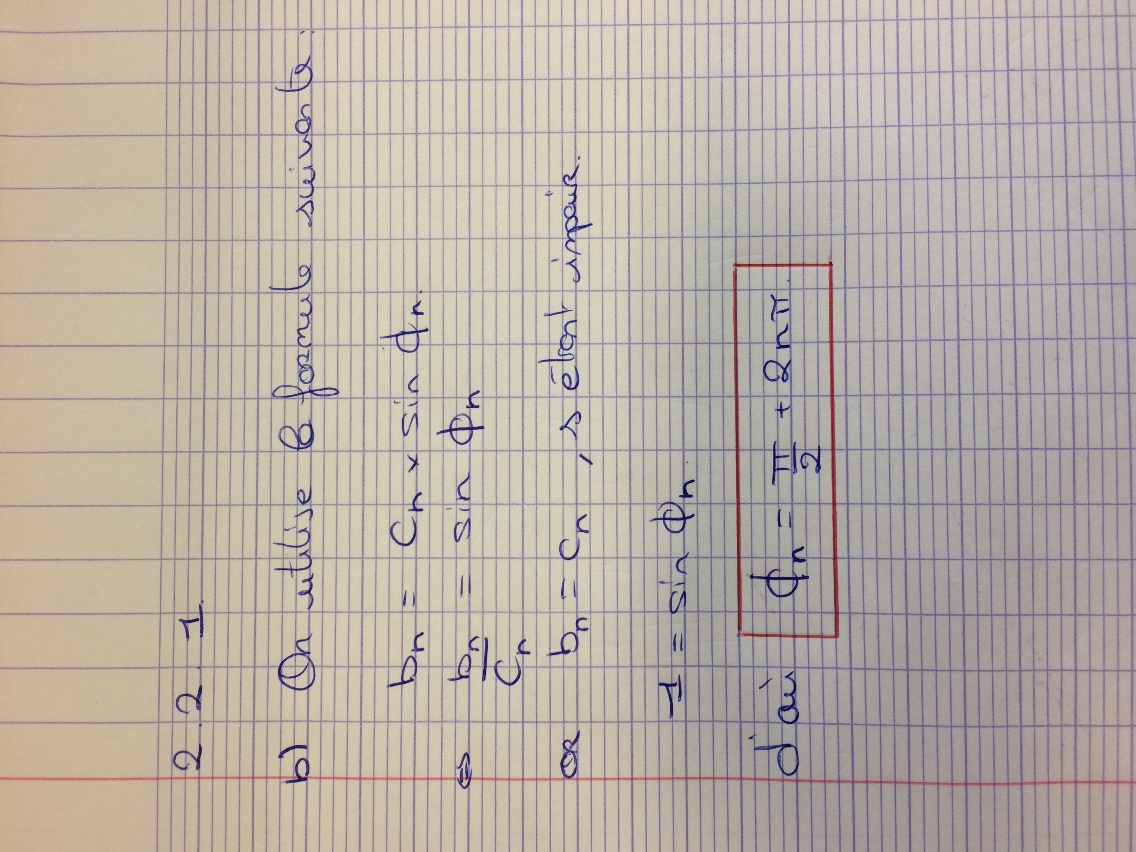 2.2.1
b) On utilise la formule suivante:
bn = Cn × sin ϕn.
⇔ bn/Cn = sin ϕn
or bn = Cn, s étant impair.
1 = sin ϕn.
d'où ϕn = π/2 + 2nπ.